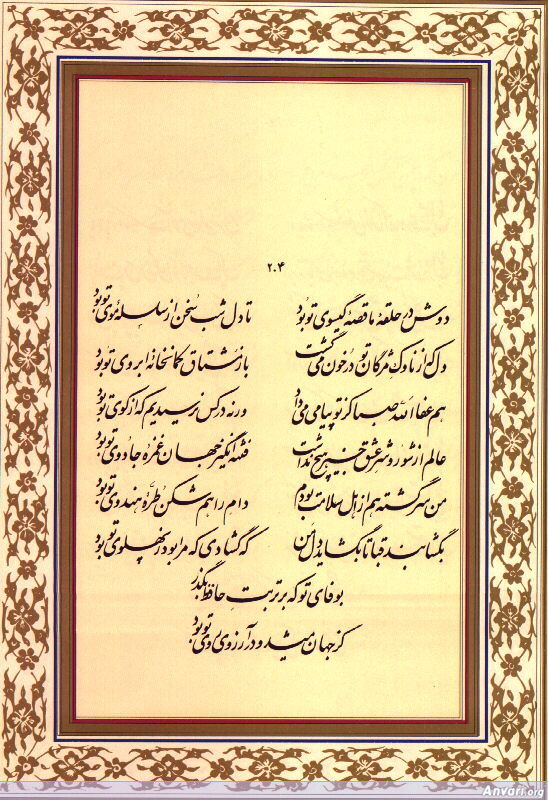 ۲۰۴
دوش در حلقهٔ ما قصهٔ گیسوی تو بود تا دل شب سخن از سلسلهٔ موی تو بود
دل که از ناوک مژگان تو در خون می‌گشت باز مشتاق کمانخانهٔ ابروی تو بود
هم عفا الله صبا کز تو پیامی می‌داد ورنه در کس نرسیدیم که از کوی تو بود
عالم از شور و شر عشق خبر هیچ نداشت فتنه‌انگیز جهان غمزهٔ جادوی تو بود
من سرگشته هم از اهل سلامت بودم دام راهم شکن طرهٔ هندوی تو بود
بگشا بند قبا تا بگشاید دل من که گشادی که مرا بود ز پهلوی تو بود
بوفای تو که بر تربت حافظ بگذر
کز جهان میشد و در آرزوی روی تو بود
Anvari.org